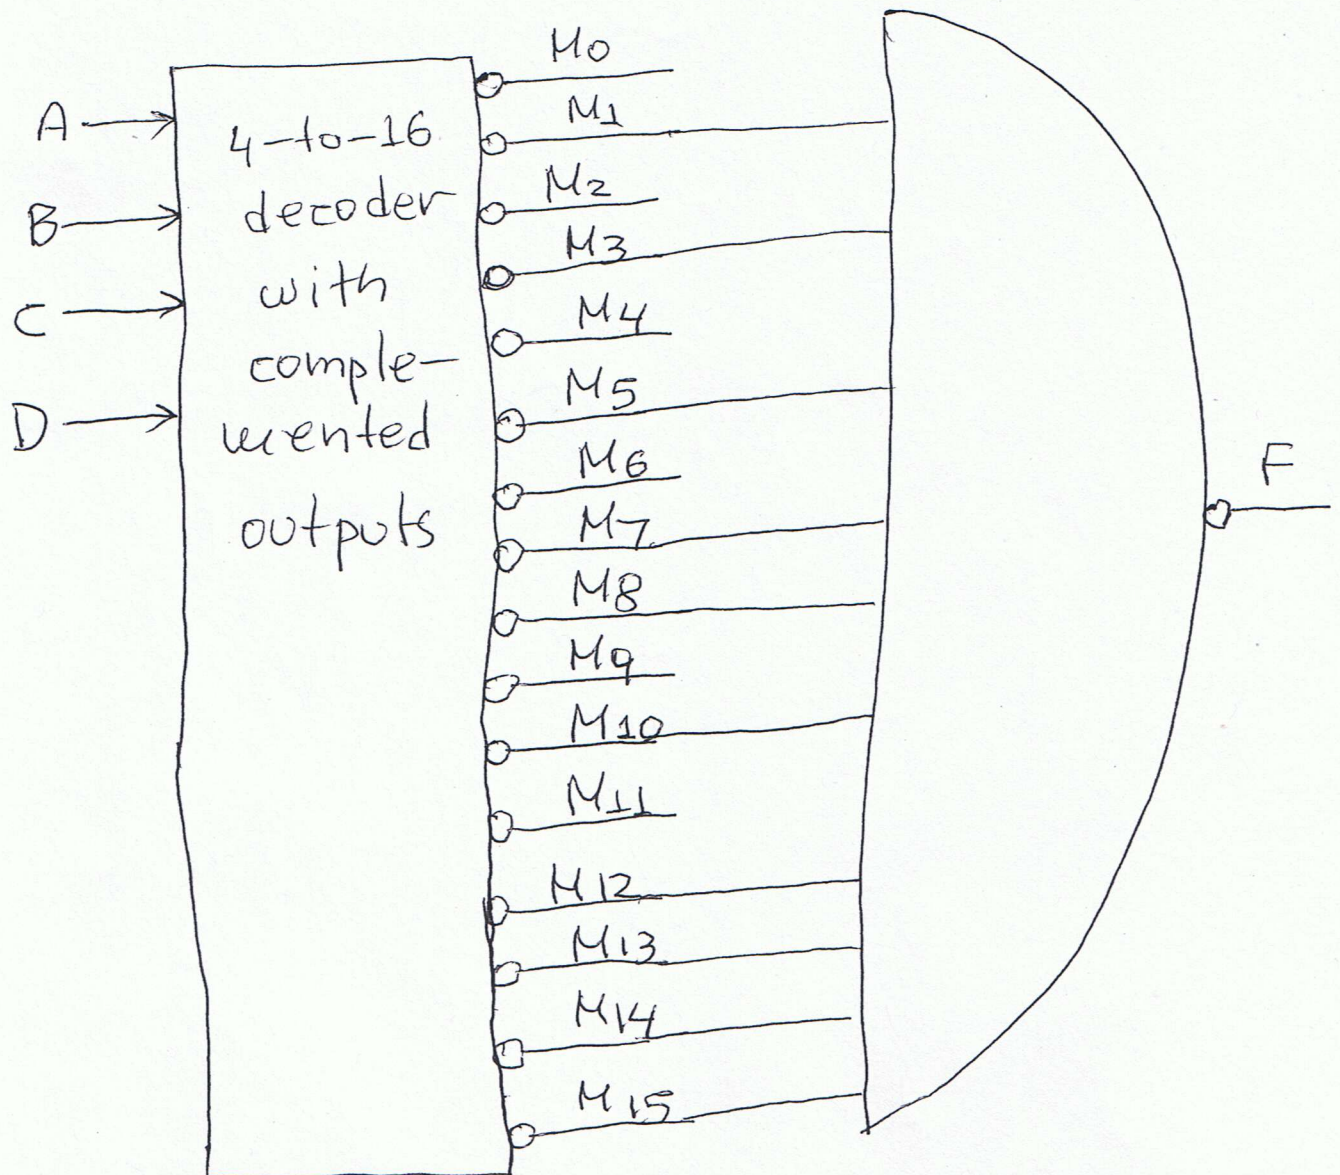 A
B
C
D
4-to-16
decoder
with
comple-
mented
outputs
M0
M1
M2
M3
M4
M5
M6
M7
M8
M9
M10
M11
M12
M13
M14
M15
F